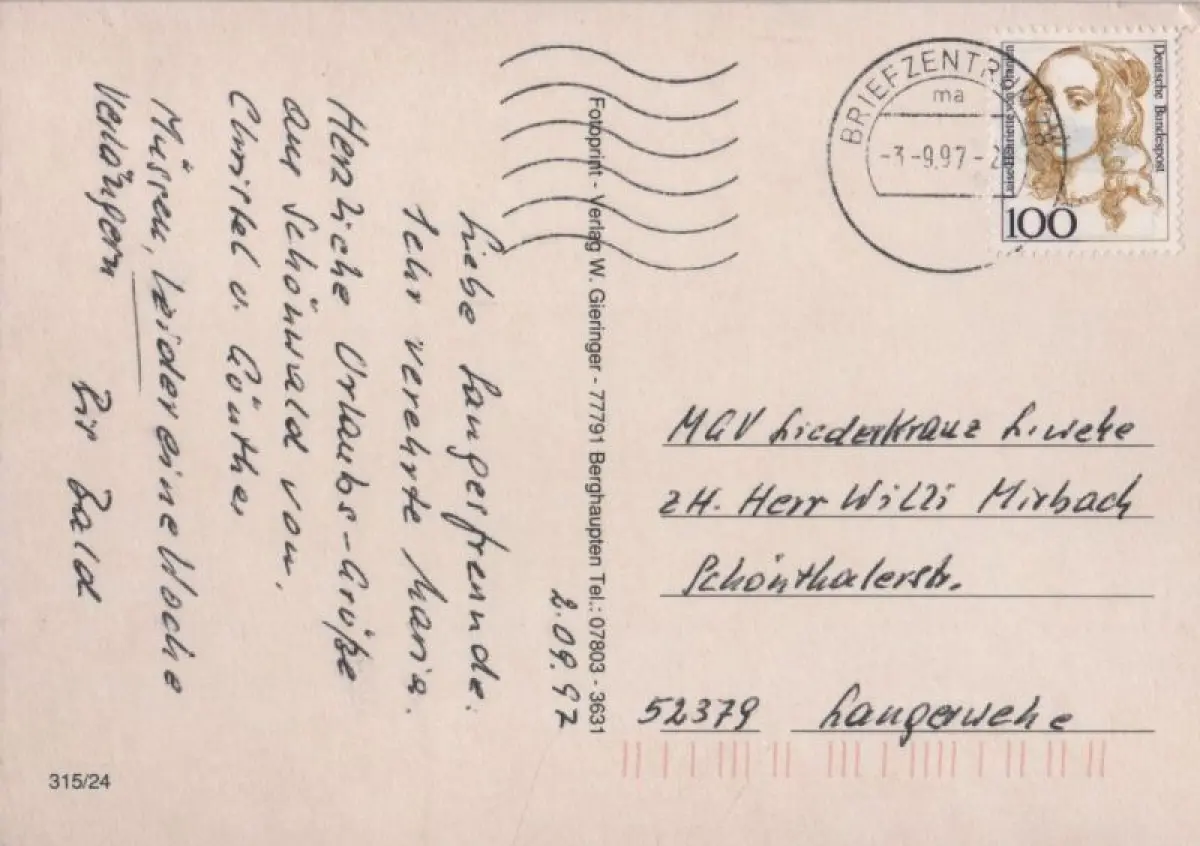 2.09.97
Liebe Sangesfreunde.
Sehr verehrte Maria.
Herzliche Urlaubs-Grüße
aus Schönwald von.
Christel u. Günther
Müssen, leider eine Woche
Verlängern Bis Bald
315/24
Fotoprint - Verlag W. Gieringer - 77791 Berghaupten Tel.: 07803 - 3631
BRIEFZENTRUM 78
ma
-3.-9.97-2
Deutsche Bundespost
100
MGV Liederkranz L.wehe
zH. Herr Willi Mirbach
Schönthalerstr.
52379 Langerwehe